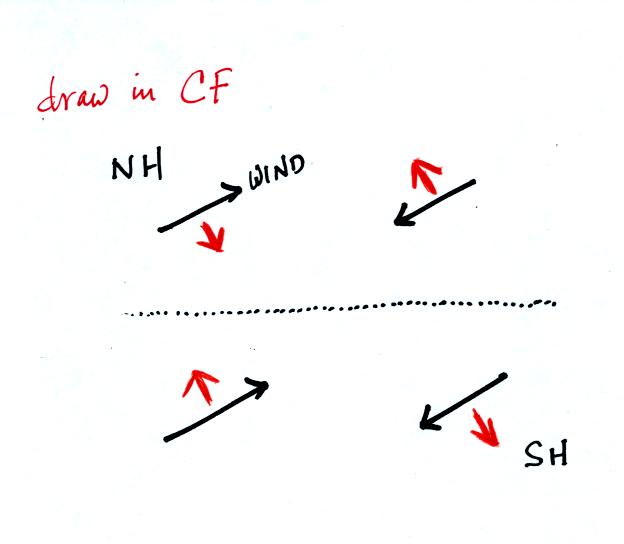 draw in CF
NH
WIND
SH